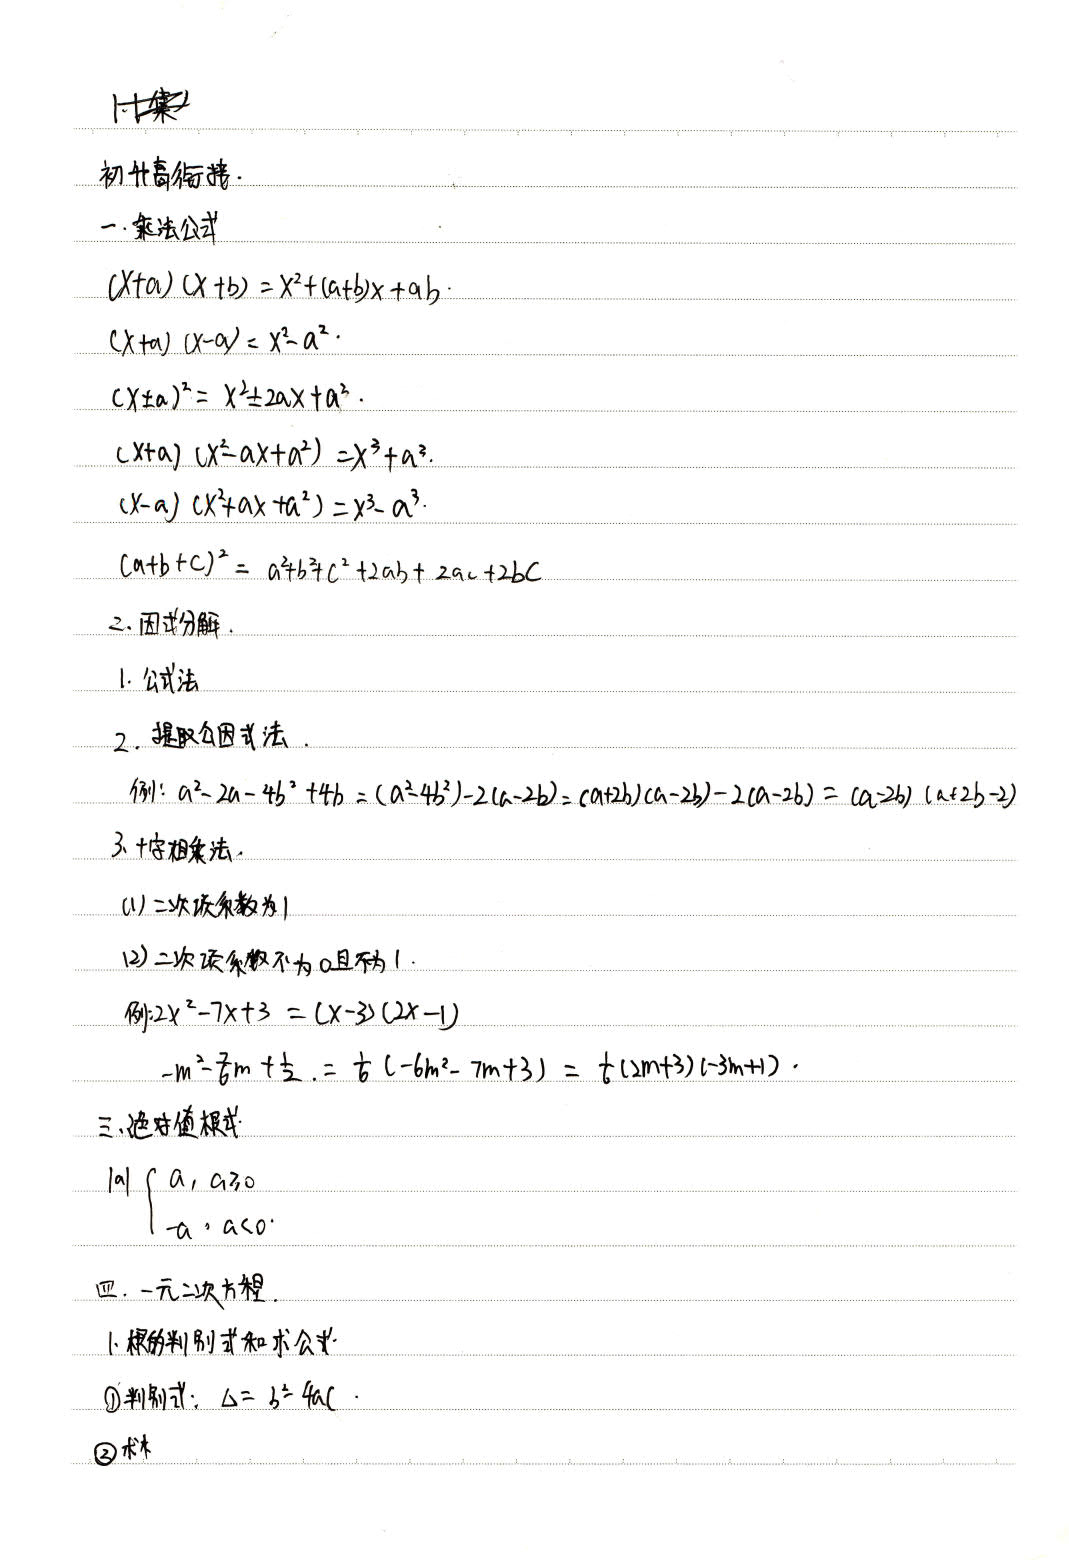 初升高衔接.
一.乘法公式
(x+a)(x+b)=x²+(a+b)x+ab.
(x+a)(x-a)=x²-a².
(x±a)²=x²±2ax+a².
(x+a)(x²-ax+a²)=x³+a³.
(x-a)(x²+ax+a²)=x³-a³.
(a+b+c)²=a²+b²+c²+2ab+2ac+2bc
2.因式分解.
1.公式法
2.提取公因式法.
例:a²-2a-4b²+4b=(a²-4b²)-2(a-2b)=(a+2b)(a-2b)-2(a-2b)=(a-2b)(a+2b-2)
3.十字相乘法.
(1)二次项系数为1
(2)二次项系数不为0且不为1.
例:2x²-7x+3=(x-3)(2x-1)
-m²-7/6m+1/2.=1/6(-6m²-7m+3)=1/6(2m+3)(-3m+1).
三.绝对值根式.
|a|{a,a≥0
-a,a<0.
四.一元二次方程.
1.根的判别式和求公式.
①判别式:Δ=b²-4ac.
②求